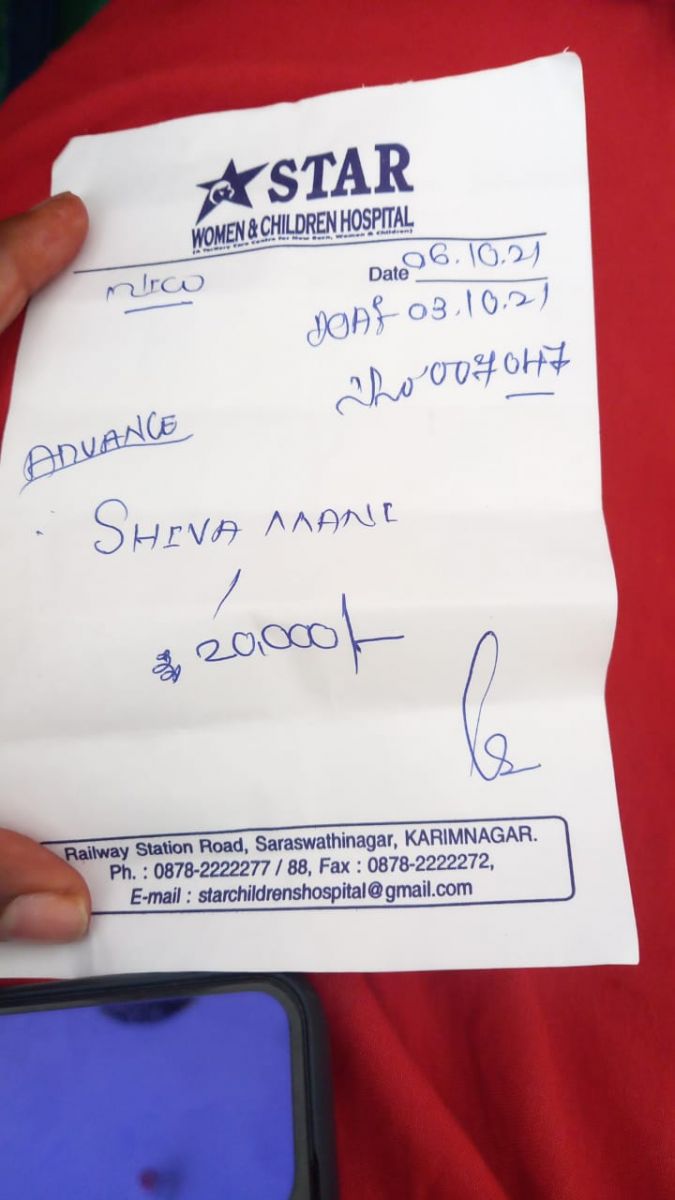 STAR
WOMEN & CHILDREN HOSPITAL
(A Tertiary Care Centre for New Born, Women & Children)
Date 06.10.21
03.10.21
007047
ADVANCE
SHIVA MANI
20,000/-
Railway Station Road, Saraswathinagar, KARIMNAGAR.
Ph. : 0878-2222277 / 88, Fax : 0878-2222272,
E-mail : starchildrenshospital@gmail.com